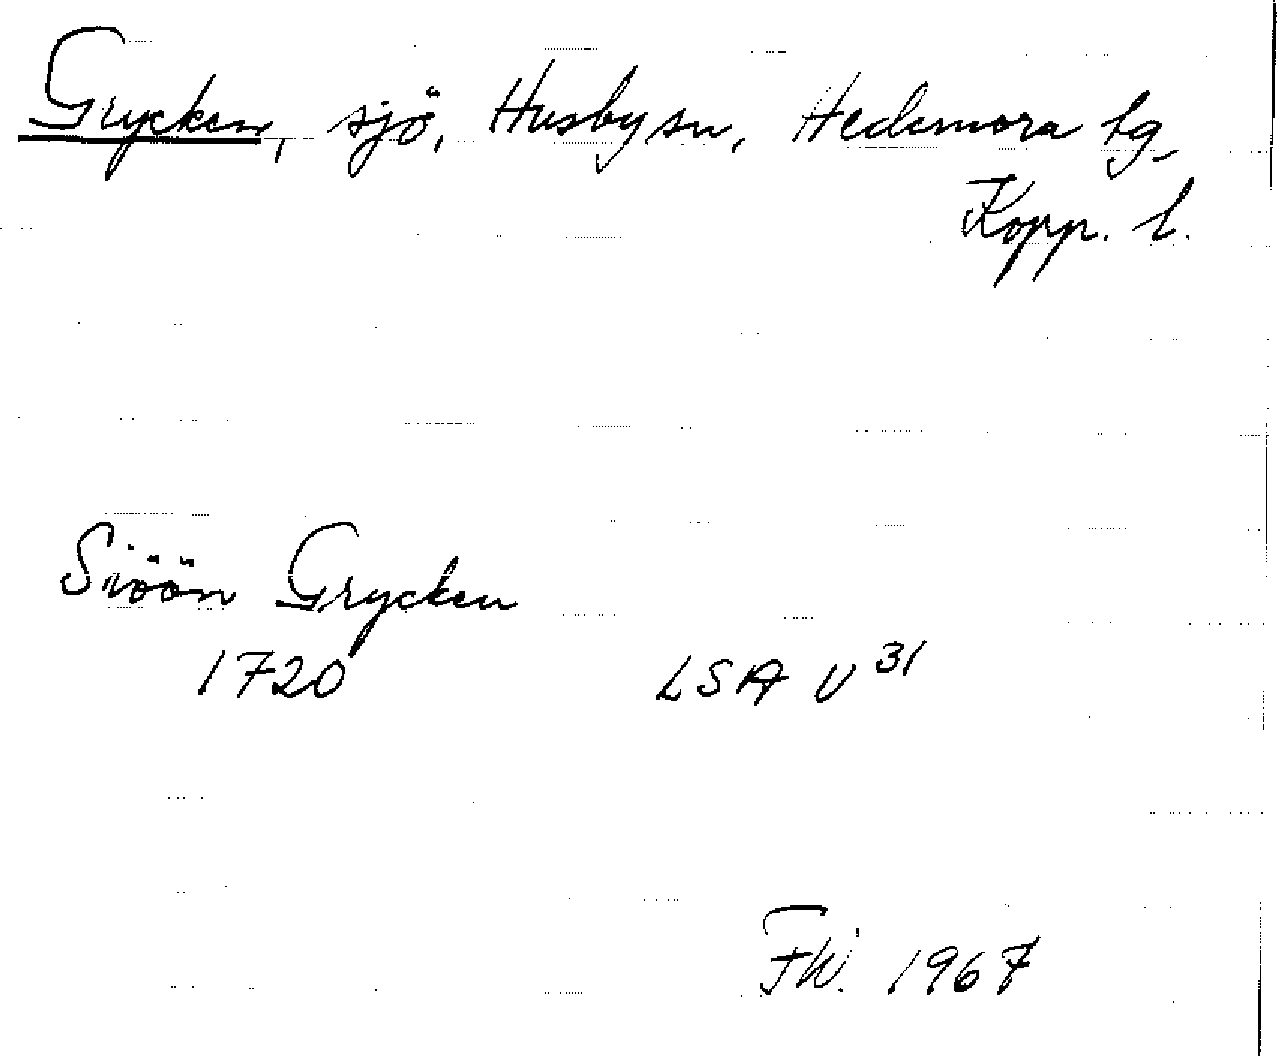 Grycken, sjö, Husby sn, Hedemora tg
Kopp. l.
Siöön Grycken
1720 LSA U 31
1967